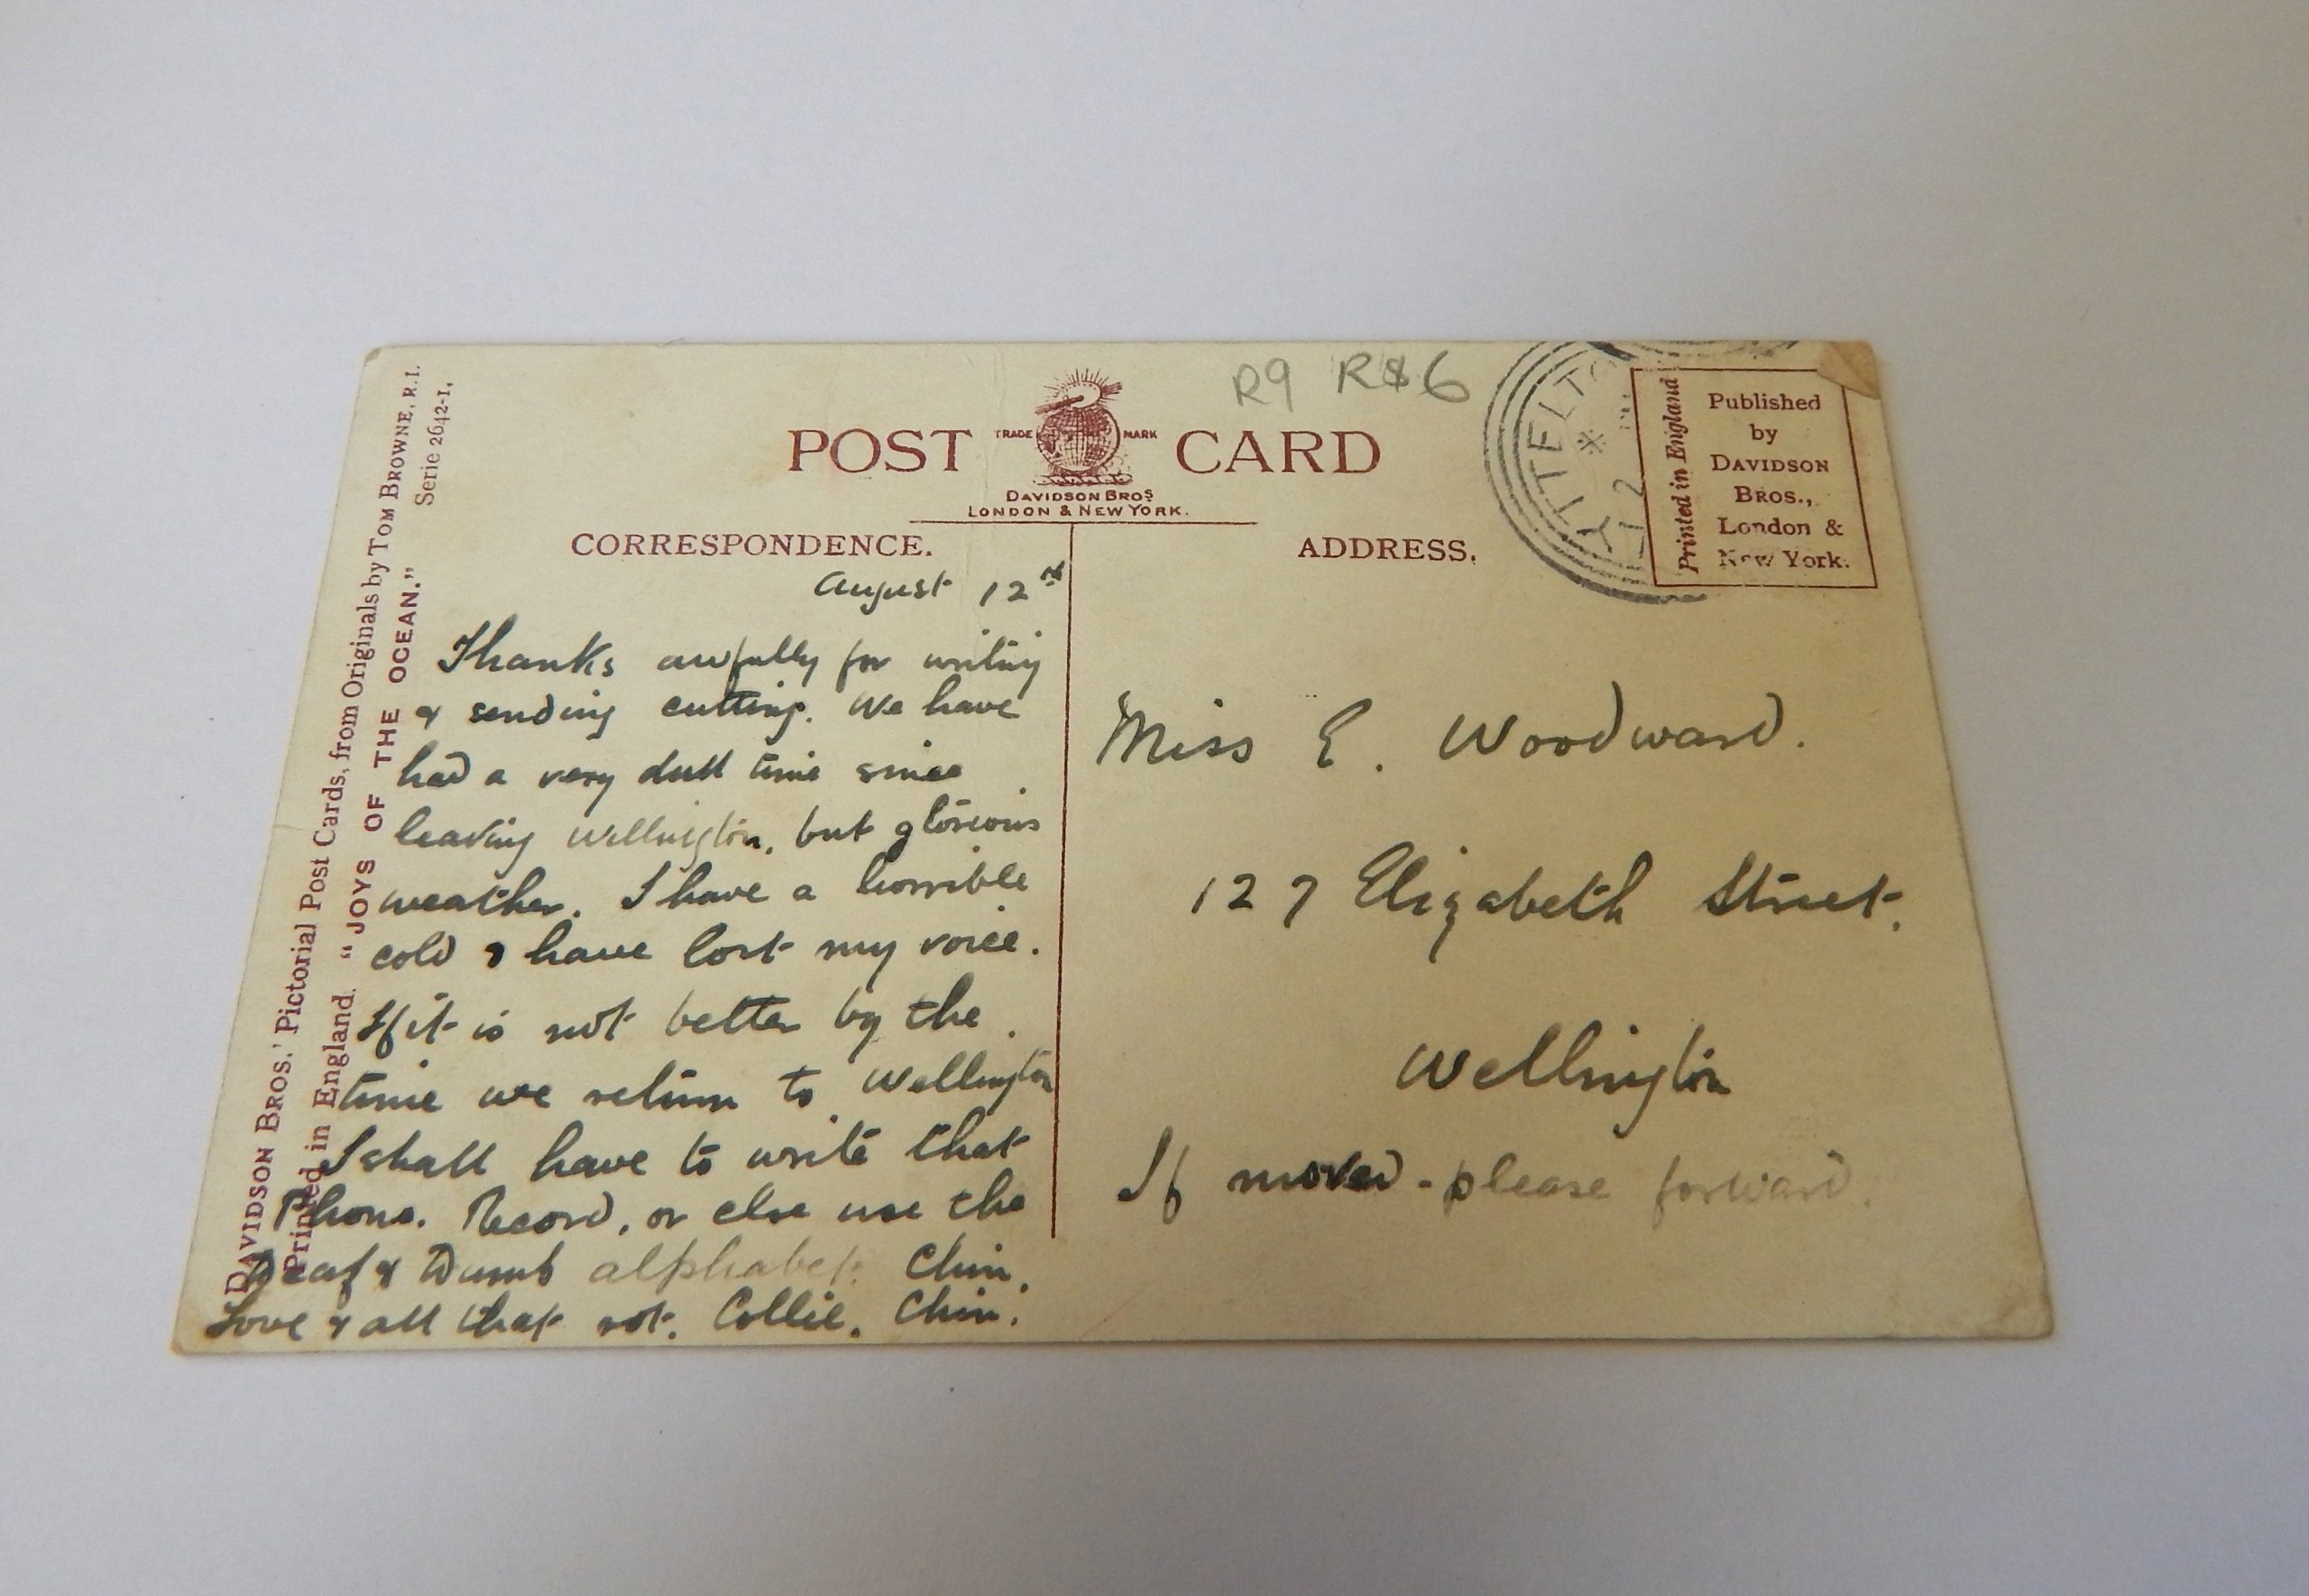 DAVIDSON BROS.' Pictorial Post Cards, from Originals by TOM BROWNE, R.I.
Printed in England. "JOYS OF THE OCEAN." Serie 2642-1,
R9 R$6
POST CARD
TRADE MARK
DAVIDSON BROS
LONDON & NEW YORK.
CORRESPONDENCE.
August 12th
Thanks awfully for writing
& sending cutting. We have
had a very dull time since
leaving Wellington, but glorious
weather. I have a horrible
cold & have lost my voice.
If it is not better by the
time we return to Wellington
I shall have to write that
Phono. Record, or else use the
Deaf & Dumb alphabet. Chin.
Love & all that rot. Collie. Chin.
ADDRESS.
LYTTELTO
12
Printed in England
Published
by
DAVIDSON
BROS.,
London &
New York.
Miss E. Woodward.
127 Elizabeth Street.
Wellington
If moved - please forward.